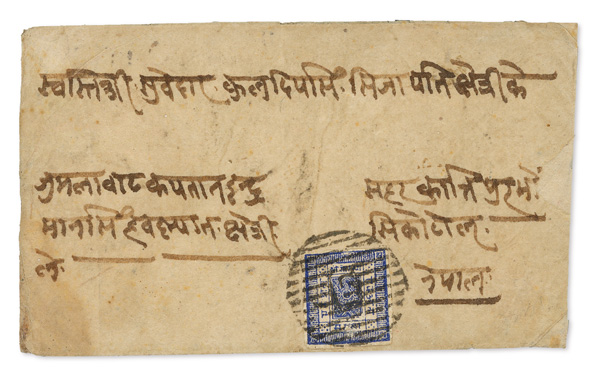 स्वस्तिश्री सुवेदार कुलदिपसिं सिजापति क्षेत्रीके
जुमलाबाट कपतान इन्द्र
मानसिं हवस्न्यात क्षेत्री
ले
सहर कान्तिपुरमों
सिकोटोल
नेपाल